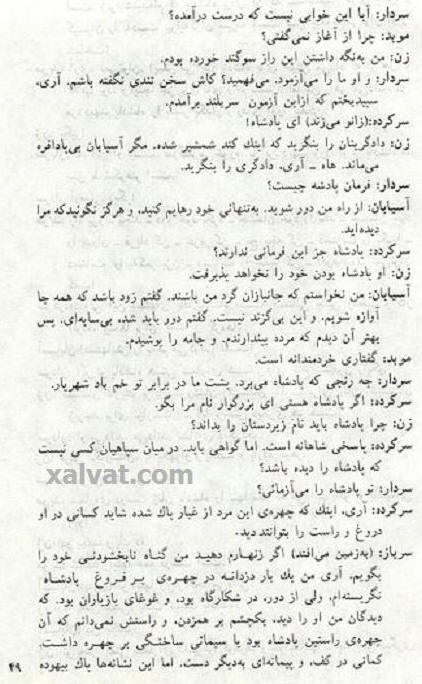 سردار: آیا این خوابی نیست که درست درآمده؟
موبد: چرا از آغاز نمی‌گفتی؟
زن: من به‌نگه داشتن این راز سوگند خورده بودم.
سردار: و او ما را می‌آزمود. می‌فهمید؟ کاش سخن تندی نگفته باشم. آری،
سپیدبختم که ازاین آزمون سربلند برآمدم.
سرکرده:(زانو می‌زند) ای پادشاه!
زن: دادگریتان را بنگرید که اینك کند شمشیر شده. مگر آسیابان بی‌بادافره
می‌ماند. هاه ـ آری. دادگری را بنگرید.
سردار: فرمان پادشه چیست؟
آسیابان: از راه من دور شوید. به‌تنهائی خود رهایم کنید. و هرگز نگوئیدکه مرا
دیده‌اید.
سرکرده: پادشاه جز این فرمانی ندارند؟
زن: او پادشاه بودن خود را نخواهد پذیرفت.
آسیابان: من نخواستم که جانبازان گرد من باشند. گفتم زود باشد که همه جا
آوازه شویم. و این بی‌گزند نیست. گفتم دور باید شد، بی‌سایه‌ای. پس
بهتر آن دیدم که مرده بیندارندم. و جامه را پوشیدم.
موبد: گفتاری خردمندانه است.
سردار: چه رنجی که پادشاه می‌برد. پشت ما در برابر تو خم باد شهریار.
سرکرده: اگر پادشاه هستی ای بزرگوار نام مرا بگو.
زن: چرا پادشاه باید نام زیردستان را بداند؟
سرکرده: پاسخی شاهانه است. اما گواهی باید. در میان سپاهیان کسی نیست
که پادشاه را دیده باشد؟
xalvat.com
سردار: تو پادشاه را می‌آزمائی؟
سرکرده: آری، اینك که چهره‌ی این مرد از غبار پاك شده شاید کسانی در او
دروغ و راست را بتوانند دید.
سرباز: (به‌زمین می‌افتد) اگر زنهارم دهید من گناه نابخشودنی خود را
بگویم. آری من یك بار دزدانه در چهره‌ی پر فروغ پادشاه
نگریسته‌ام. ولی از دور. در شکارگاه بود. و غوغای بازیاران بود. که
دیدگان من او را دید. یکچشم بر همزدن. و راستش نمی‌دانم که آن
چهره‌ی راستین پادشاه بود یا سیمائی ساختگی بر چهره داشت.
کمانی در کف، و پیمانه‌ای به‌دیگر دست. اما این نشانه‌ها پاك بیهوده
۴۹